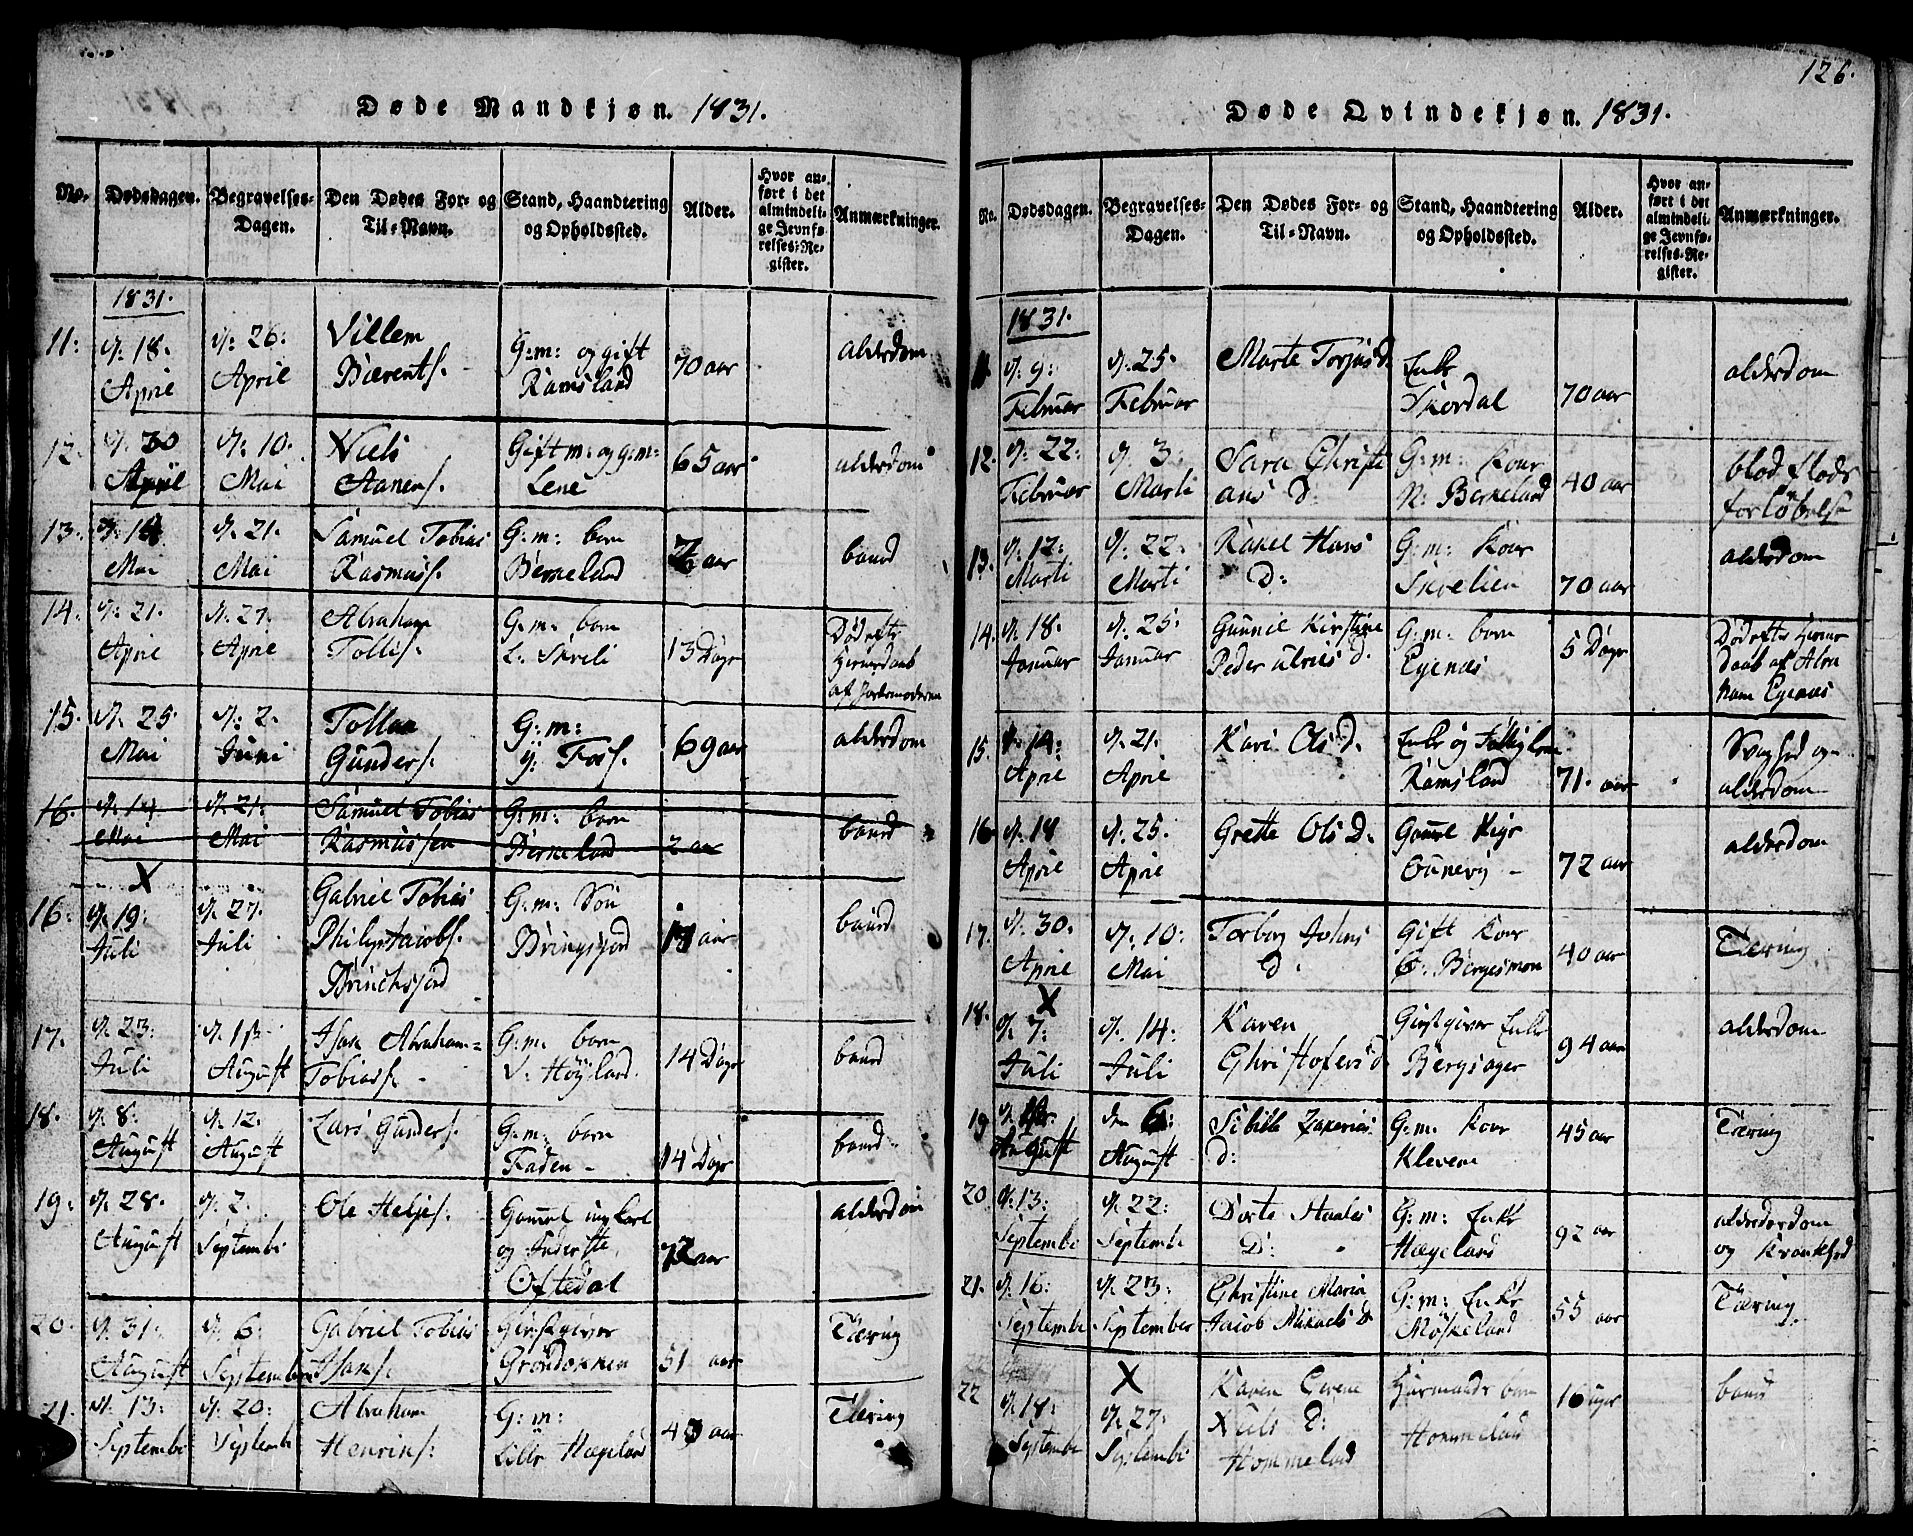 126.
Døde Mandkjøn. 1831.
No. Dødsdagen. Begravelses-Dagen. Den Dødes For- og Til-Navn. Stand, Haandtering og Opholdssted. Alder. Hvor anført i det almindelige Jevnførelses-Register. Anmærkninger.
1831.
11: d: 18. April d: 26: April Villem Bærents. G:m: og gift Ramsland 70 aar alderdom
12. d. 30 April d: 10. Mai Niels Aanens. Gift m: og g:m: Lene 65 aar alderdom
13. d. 14 Mai d. 21. Mai Samuel Tobias Rasmuss. G:m: born Berkeland 2 aar baund
14. d. 21. April d: 27. April Abraham Tollifs. G:m: born L. Skveli 13 Dage Død efter hiemedaab af Jordemoderen
15. d. 25 Mai d: 2. Juni Tollaa Gunders. G:m: y. Foss. 69 aar alderdom
16. d. 14 Mai d. 21: Mai Samuel Tobias Rasmussen G:m: born Berkeland 2 aar baund
X
16. d. 19: Juli d. 27. Juli Gabriel Tobias Philip Jacobs. Brinchsjord G:m: Søn Bringsjord aar baund
17. d. 23: Juli d. 1ste August Isak Abraham= Tobiass. G:m. born V. Høyland. 14 Dage baund
18. d. 8. August d. 12. August Lars Gunders. G:m: born Faden - 14 Dage baund
19. d. 28. August d. 2. Septembr Ole Heljes. Gammel ungkarl og Inderste, Oftedal 72 aar alderdom
20. d. 31. August d. 6. September Gabriel Tobias Isaks. Giestgiver Grøndokken 51 aar Tæring
21. d. 13. Septembr d. 20: Septembr Abraham Henriks. G:m: Lille Hægeland 43 aar Tæring
Døde Qvindekjøn. 1831.
No. Dødsdagen. Begravelses-Dagen. Den Dødes For- og Til-Navn. Stand, Haandtering og Opholdssted. Alder. Hvor anført i det almindelige Jevnførelses-Register. Anmærkninger.
1831.
11. d: 9: Februar d. 25. Februar Marte Torjusd. Enke Skordal 70 aar alderdom
12. d: 22: Februar d. 3: Marti Sara Christi ans D. G:m: Kone N: Berkeland 40 aar blod flods forløbelse
13. d. 12: Marti d. 22: Marti Rakel Hans D: G:m: Kone Skvelien 70 aar alderdom
14. d. 18. Januar d. 25. Januar Gunnil Kirstine Peder Ulriks d. G:m: born Eyenæs 5 Dage Død efter hieme Daab af Abra ham Eyenæs
15. d. 14: April d. 21. April Kari Ols D. Enke og Ramsland 71. aar Svaghed og alderdom
16 d. 18 April d. 25. April Grette Ols D. Gammel Pige 72 aar alderdom
17. d. 30. April d. 10: Mai Torborg Johns D. Gift Kone Bergesmon 40 aar Tæring
X
18. d. 7: Juli d. 14: Juli Karen Christofers d. Giestgiver Enke Bergsager 94 aar alderdom
19 August d. 6: August Sibille Zakarias. D: G:m: Kone Klevene 45 aar Tæring
20 d. 13: Septembr d. 22: Septembr Dorte Haales D: G:m: Enke Hægeland 92 aar alderdom og Krankhed
21. d. 16: Septembr. d. 23: September Christine Maria Jacob Mikaels D. G:m: Enke Moskeland 55 aar Tæring.
X
22 d. 18: Septembr d. 27: Septembr Karen Niels D: Hommeland Huusmands born Hommeland 16 uger baund